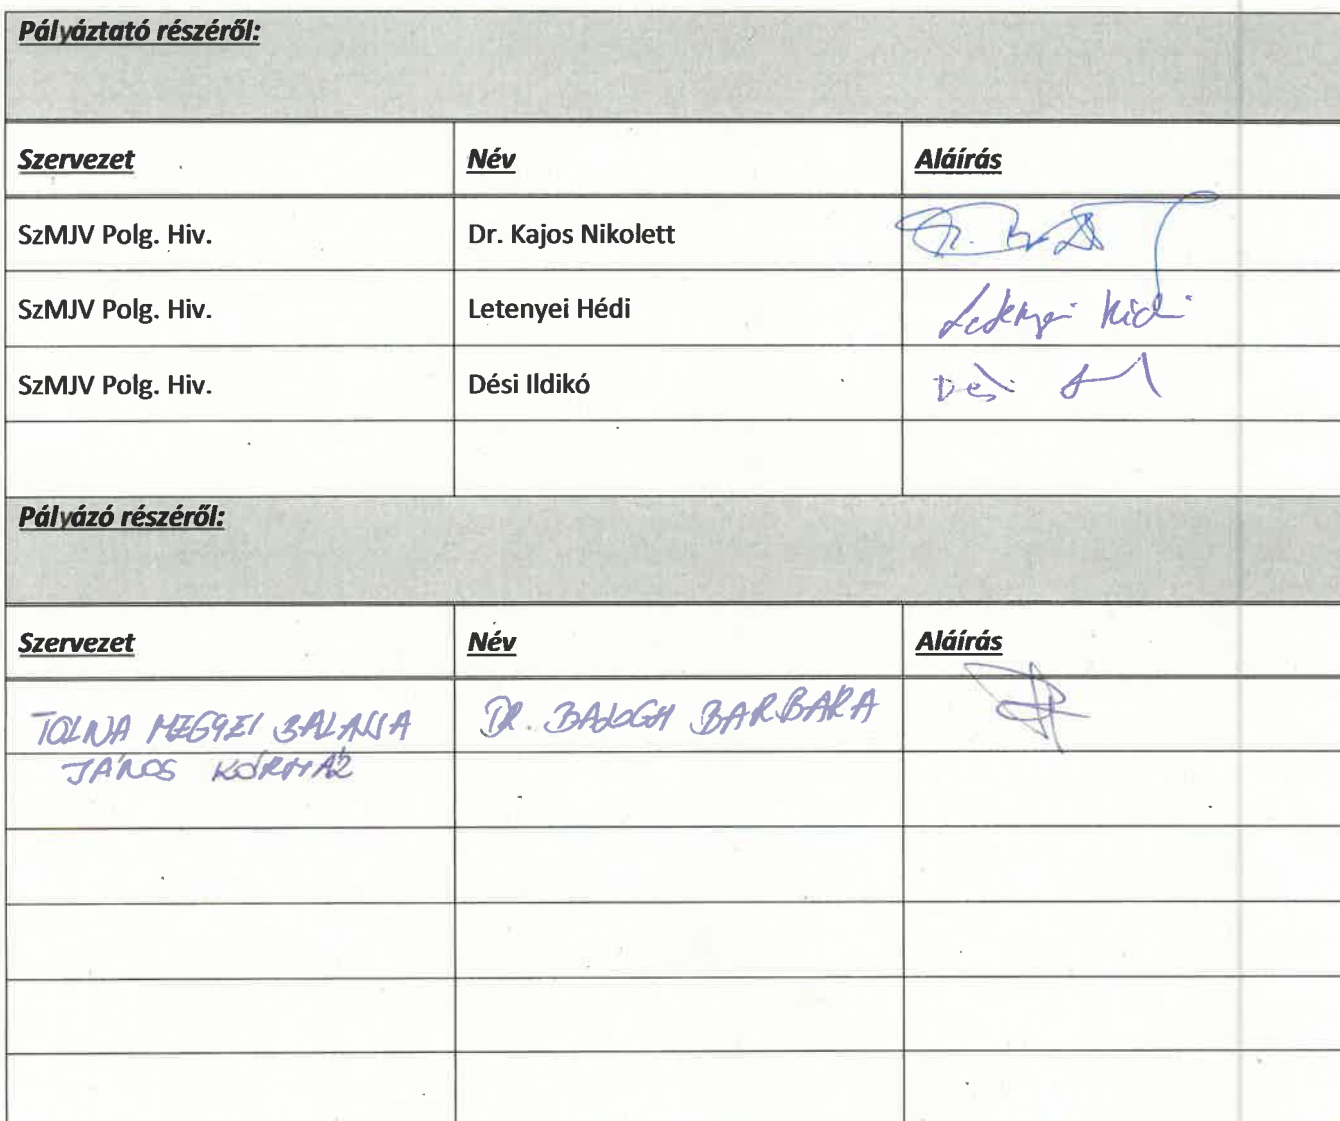 Pályáztató részéről:
Szervezet Név Aláírás
SzMJV Polg. Hiv. Dr. Kajos Nikolett
SzMJV Polg. Hiv. Letenyei Hédi Letenyei Hédi
SzMJV Polg. Hiv. Dési Ildikó Dési
Pályázó részéről:
Szervezet Név Aláírás
TOLNA MEGYEI BALASSA DR. BALOGH BARBARA
JÁNOS KÓRHÁZ